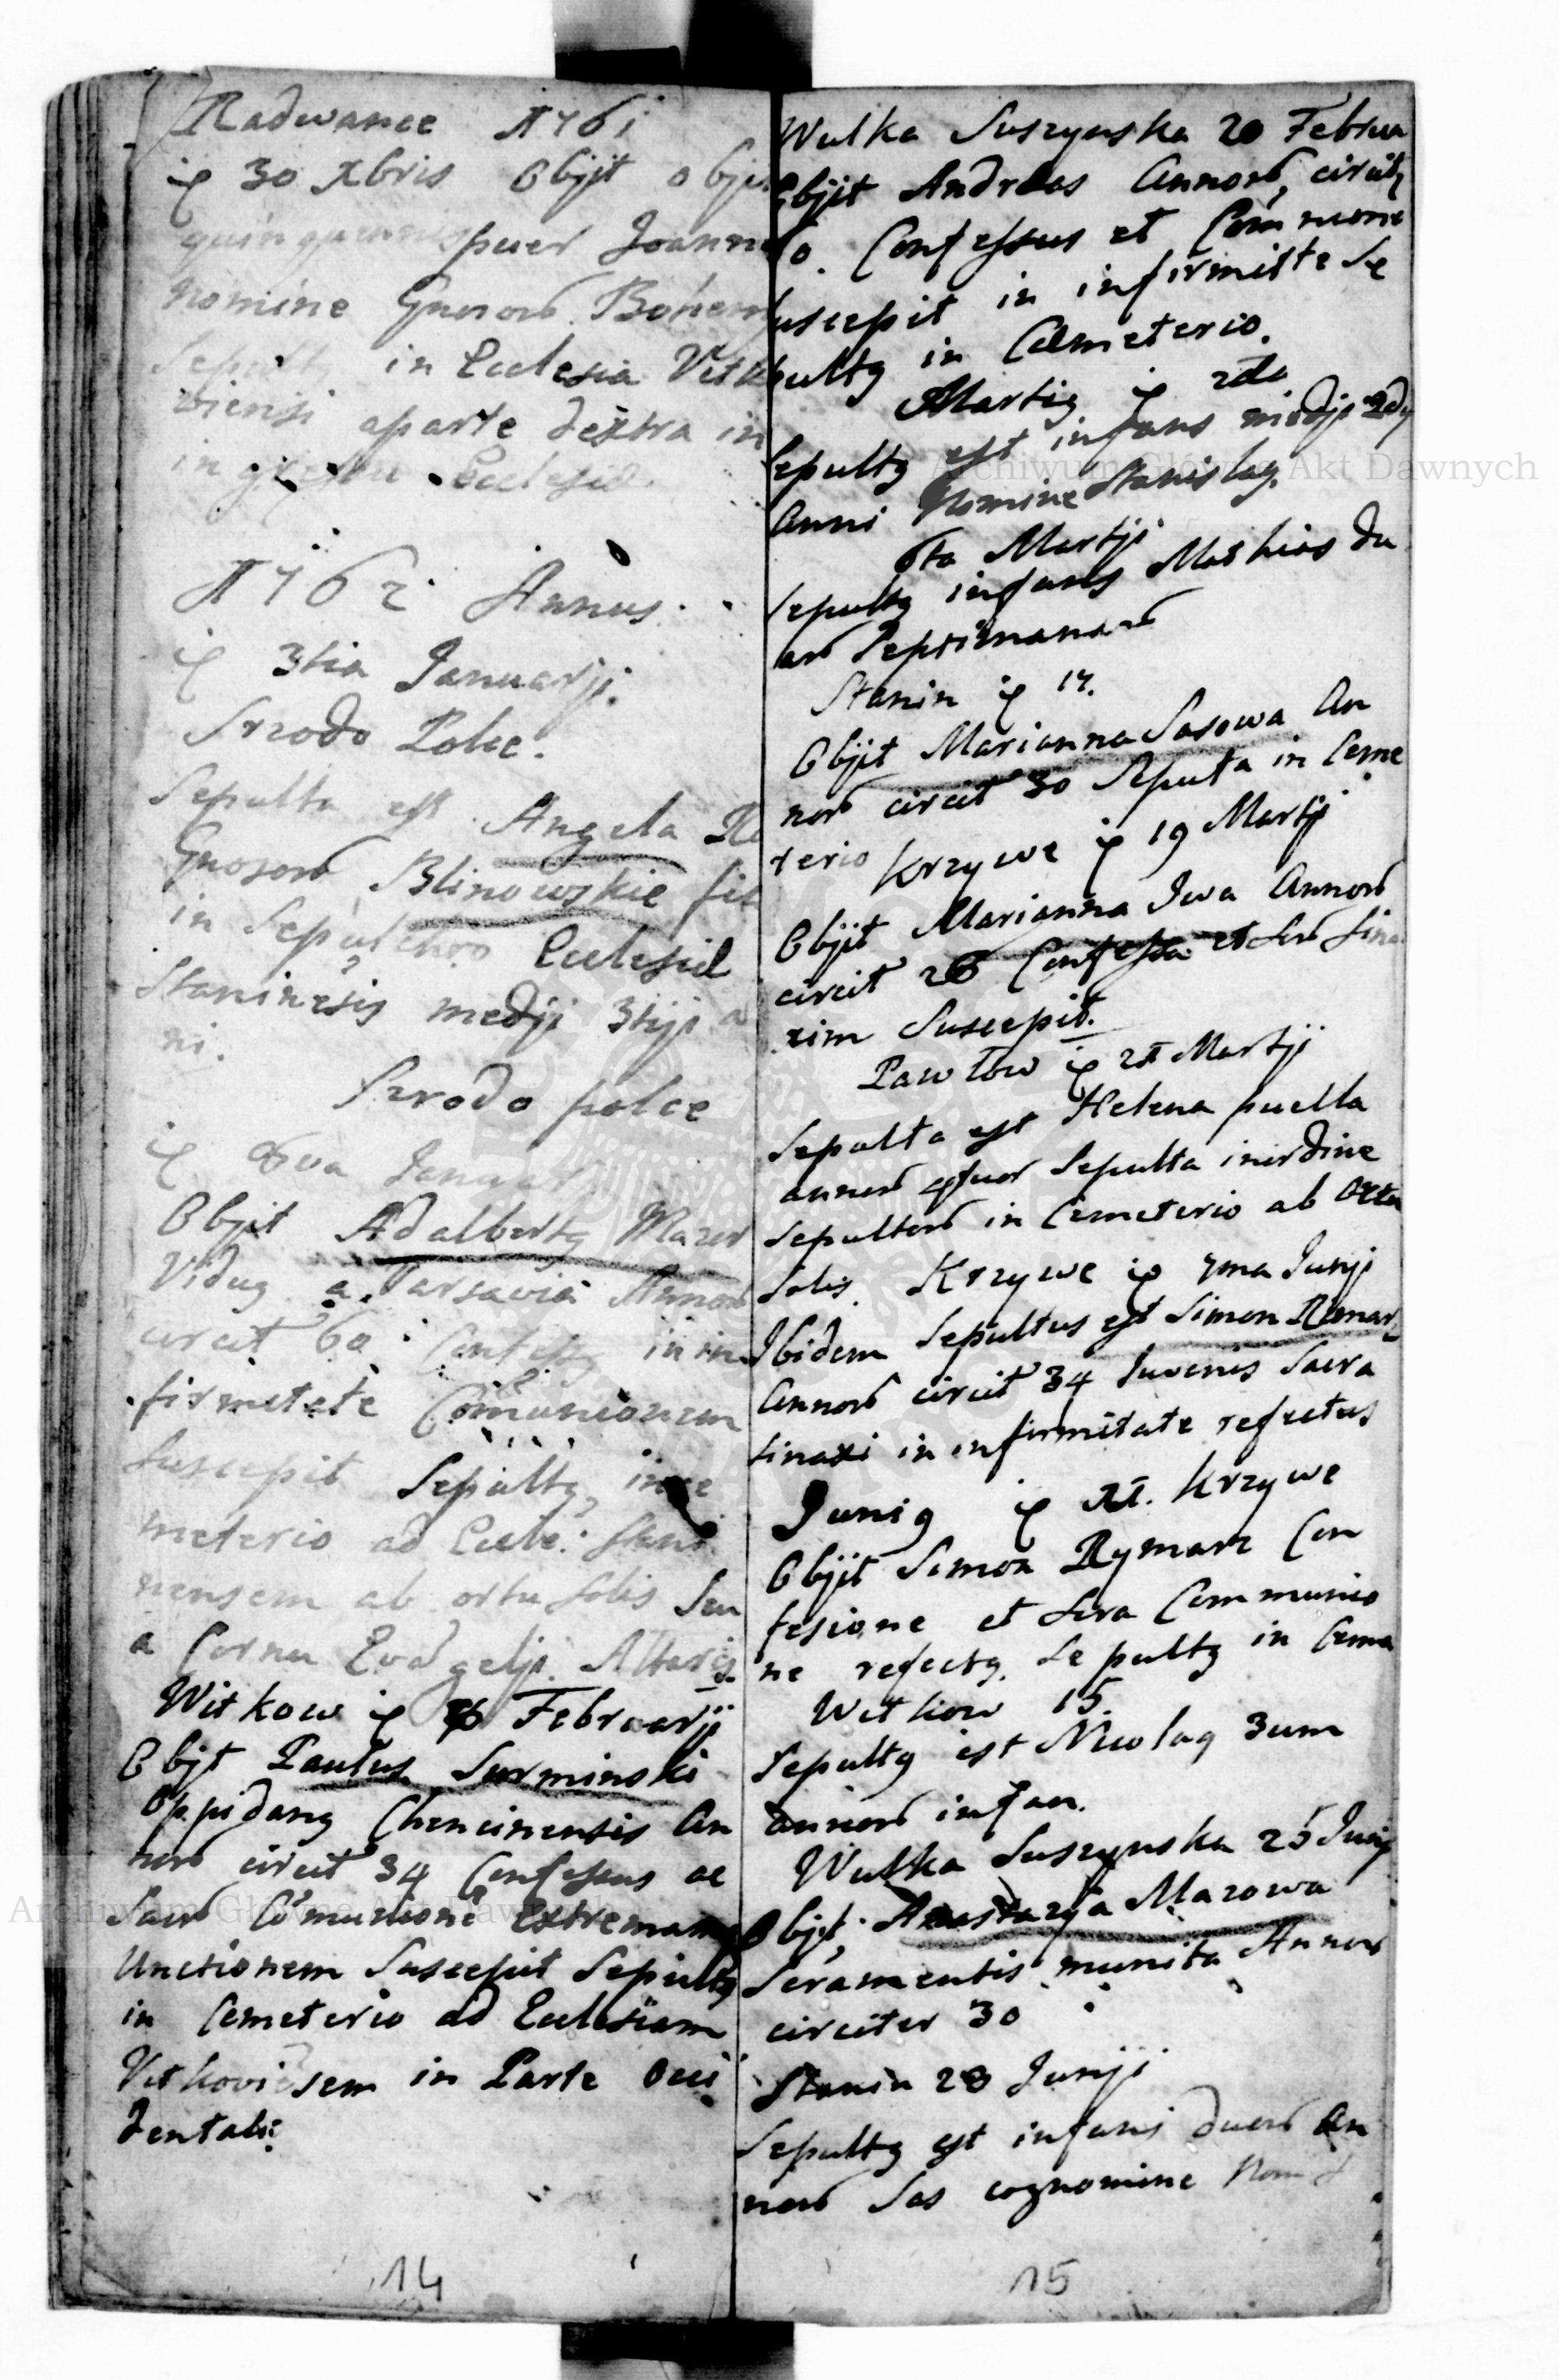 Radwance 1761
30 Xbris Objit obji
puer Joann
Nomine Gnosorum Bohem
in Ecclesia Vitk
viensi aparte dextra in
in Ecclesiae
1762 Annus.
3tia Januarji.
Srzodo Polce.
Sepulta est Angela
Gnosorum Blinowskie fil
in Sepulchro Ecclesiae
Staninesis medji 3tiji a
ni.
Srzodo polce
8va Januarj
Objit Adalbertg Mazur
Vidug a Varsavia Annorum
circit 60 Confessg in in
firmitate Com̃unionem
Suscepit Sepultg in ce
meterio ad Eccle: Stani
nensem ab ortu Solis Seu
a Cornu Evãgelji Altaris.
Witkow Februarji
Objt Paulus Surminski
Oppidang Chencinensis An
norum circit 34 Confessus ac
Com̃unione Extremam
Unctionem Suscepit Sepultg
in Cemeterio ad Ecclesiam
Vitkoviesem in Parte Occi
dentali:
14
Wulka Suszynska 20 Februa
Objit Andreas Annorum circitg
Confessus et Com̃unione
suscepit in infirmitte Se
pultg in Caemeterio.
Martig 2da
Sepultg est infans medji 2dg
Anni Nomine Stanislag.
6ta Martji
Sepultg infans Mathias du
arum Septimanarum
Stanin 17.
Objit Marianna Sasowa An
norum circit 30 Sepulta in Ceme
terio Krzywe 19 Martji
Objit Marianna Iwa Annorum
circit 26 Confessa et Sina
xim Suscepit.
Pawlow Martji
Sepulta est Helena puella
annorum qtuor Sepulta inordine
Sepultorum in Cemeterio ab Ortu
Solis. Krzywe 7ma Junji
Ibidem Sepultus est Simon Remarz
Annorum circit 34 Iuvenis Sacra
Sinaxi in infirmitate refectus
Junig XI. Krzywe
Objit Simon Rymarz Con
fesione et Sacra Communio
ne refectg. Sepultg in Ceme
Witkow 15.
Sepultg est Nicolag 3um
annorum infan.
Wulka Suszynska 25 Junij
Objit Anastazya Mazowa
Scramentis munita Annorum
circiter 30
Stanin 28 Junji
Sepultg est infans duorum An
norum Sas cognomine
15
Archiwum Główne Akt Dawnych
Archiwum Główne Akt Dawnych